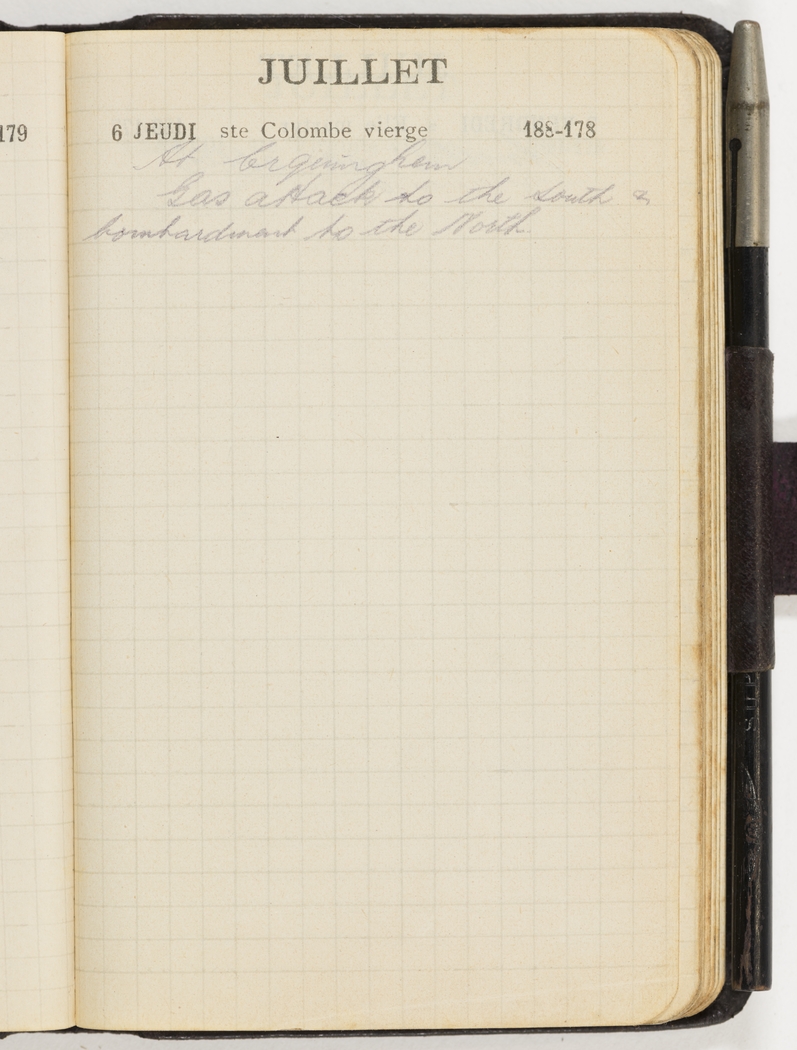 179
JUILLET
6 JEUDI ste Colombe vierge 188-178
At Erquinghem
Gas attack to the south &
bombardment to the North.